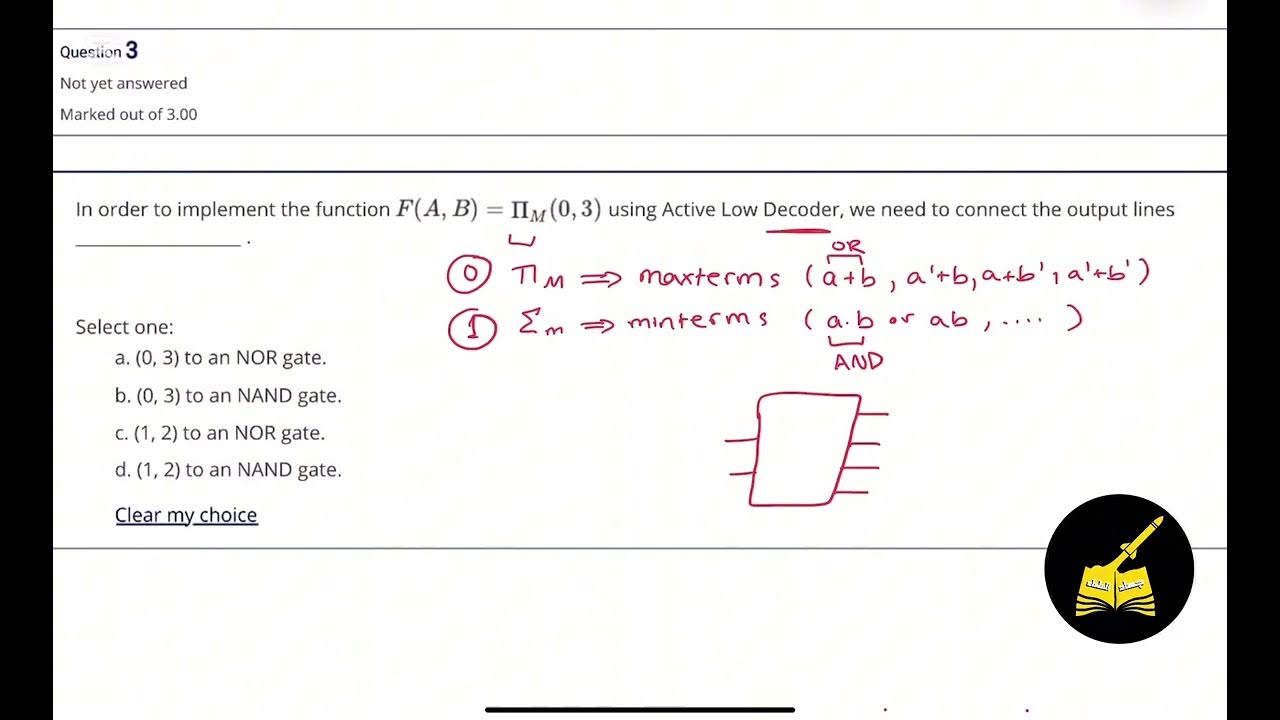 Question 3
Not yet answered
Marked out of 3.00
In order to implement the function F(A, B) = Π_M(0, 3) using Active Low Decoder, we need to connect the output lines
_________________ .
OR
0 Π_M ⇒ maxterms (a+b, a'+b, a+b', a'+b')
1 Σ_m ⇒ minterms (a.b or ab, ....)
AND
Select one:
a. (0, 3) to an NOR gate.
b. (0, 3) to an NAND gate.
c. (1, 2) to an NOR gate.
d. (1, 2) to an NAND gate.
Clear my choice